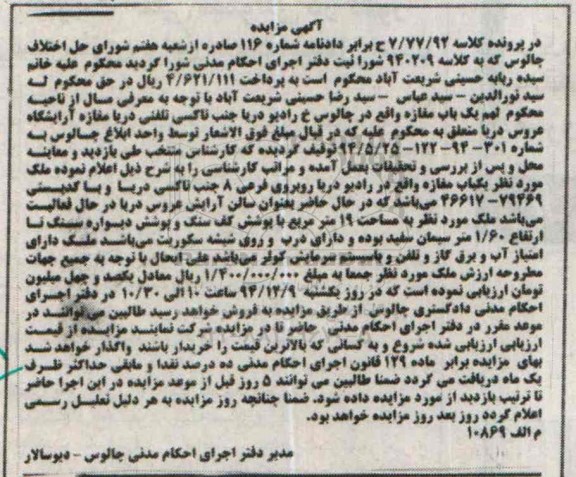 آگهی مزایده
در پرونده کلاسه ۷/۷۷/۹۲ ح برابر دادنامه شماره ۱۱۶ صادره ازشعبه هفتم شورای حل اختلاف
چالوس که به کلاسه ۹۴۰۲۰۹ شورا ثبت دفتر اجرای احکام مدنی شورا گردید محکوم علیه خانم
سیده ربابه حسینی شریعت آباد محکوم است به پرداخت ۴/۶۲۱/۱۱۱ ریال در حق محکوم له
سید نورالدین – سید عباس – سید رضا حسینی شریعت آباد با توجه به معرفی مال از ناحیه
محکوم لهم یک باب مغازه واقع در چالوس خ رادیو دریا جنب تاکسی تلفنی دریا مغازه آرایشگاه
عروس دریا متعلق به محکوم علیه که در قبال مبلغ فوق الاشعار توسط واحد ابلاغ چالوس به
شماره ۳۰۱–۹۴–۱۲۲–۹۴/۵/۲۵ توقیف گردیده که کارشناس منتخب طی بازدید و معاینه
محل و پس از بررسی و تحقیقات بعمل آمده و مراتب کارشناسی را به شرح ذیل اعلام نموده ملک
مورد نظر یکباب مغازه واقع در رادیو دریا روبروی فرعی ۸ جنب تاکسی دریا و با کدپستی
۷۹۴۶۹–۴۶۶۱۷ میباشد که در حال حاضر بعنوان سالن آرایش عروس دریا در حال فعالیت
می‌باشد ملک مورد نظر به مساحت ۱۹ متر مربع با پوشش کف سنگ و پوشش دیواره سنگ تا
ارتفاع ۱/۶۰ متر سیمان سفید بوده و دارای درب و روی شیشه سکوریت می‌باشد ملک دارای
امتیاز آب و برق گاز و تلفن و باسیستم سرمایش کولر می‌باشد علی ایحال با توجه به جمیع جهات
مطروحه ارزش ملک مورد نظر جمعا به مبلغ ۱/۴۰۰/۰۰۰/۰۰۰ ریال معادل یکصد و چهل میلیون
تومان ارزیابی نموده است که در روز یکشنبه ۹۴/۱۲/۹ ساعت ۱۰ الی ۱۰/۳۰ در دفتر اجرای
احکام مدنی دادگستری چالوس از طریق مزایده به فروش خواهد رسید طالبین می توانند در
موعد مقرر در دفتر اجرای احکام مدنی حاضر تا در مزایده شرکت نمایند مزایده از قیمت
ارزیابی ارزیابی شده شروع و به کسانی که بالاترین قیمت را خریدار باشند واگذار خواهد شد
بهای مزایده برابر ماده ۱۲۹ قانون اجرای احکام مدنی ده درصد نقدا و مابقی حداکثر ظرف
یک ماه دریافت می گردد ضمنا طالبین می توانند ۵ روز قبل از موعد مزایده در این اجرا حاضر
تا ترتیب بازدید از مورد مزایده داده شود. ضمنا چنانچه روز مزایده به هر دلیل تعلیل رسمی
اعلام گردد روز بعد روز مزایده خواهد بود.
م الف ۱۰۸۶۹
مدیر دفتر اجرای احکام مدنی چالوس – دیوسالار